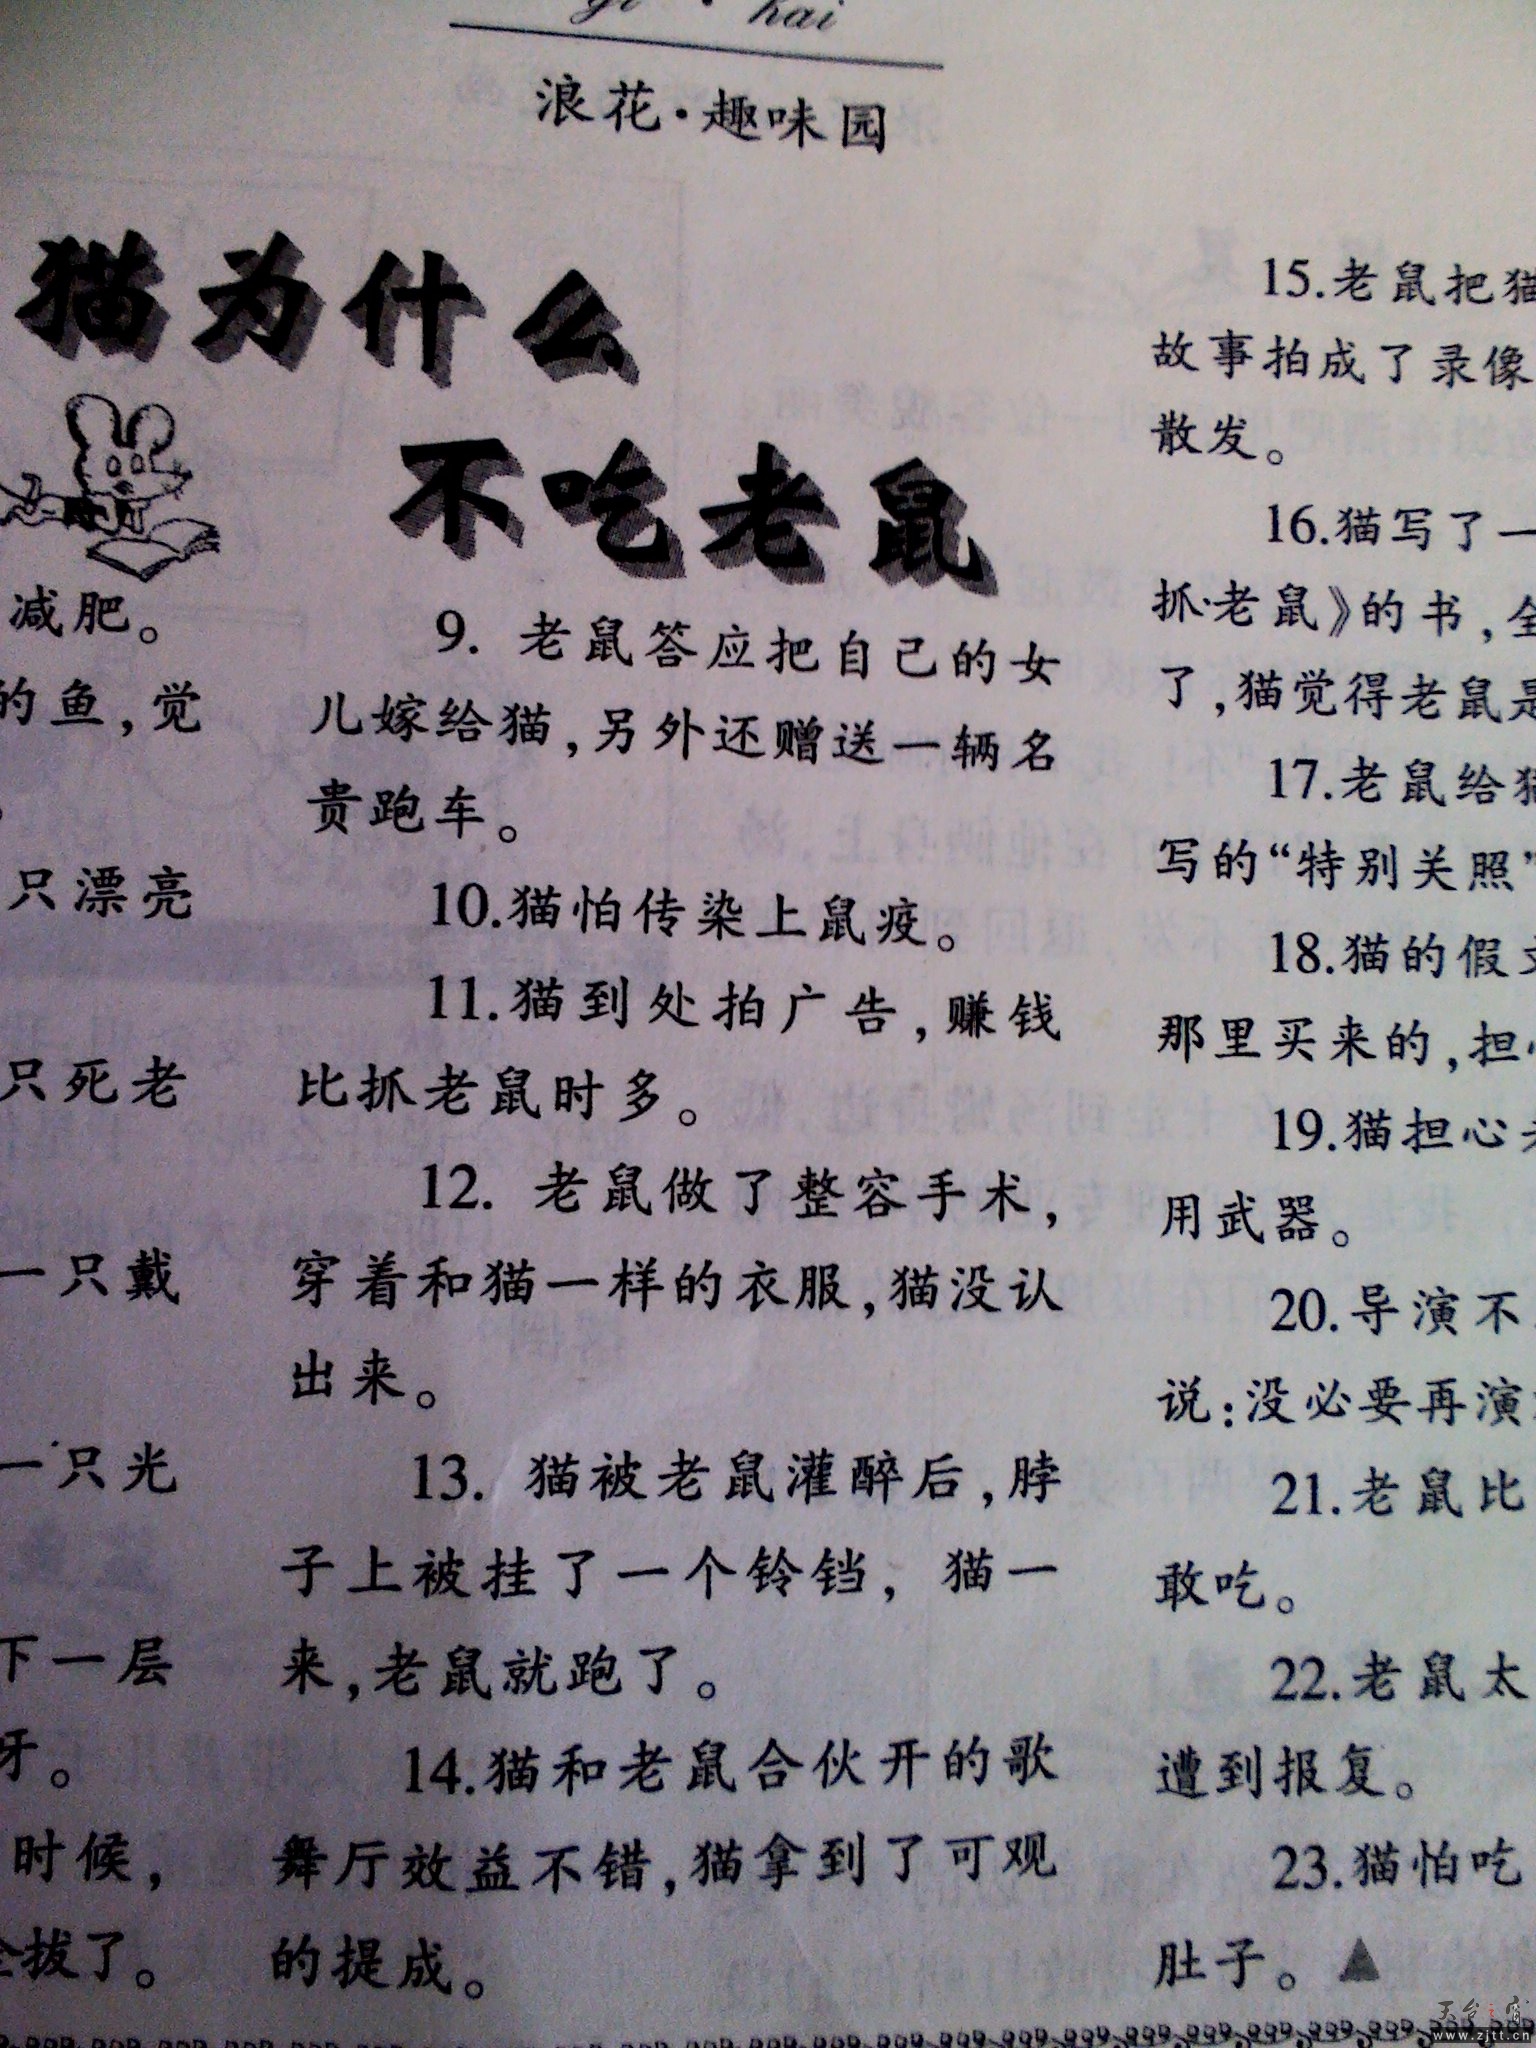 hai
浪花·趣味园
猫为什么
不吃老鼠
减肥。
的鱼,觉
只漂亮
只死老
一只戴
一只光
下一层
牙。
时候,
拔了。
9. 老鼠答应把自己的女
儿嫁给猫,另外还赠送一辆名
贵跑车。
10.猫怕传染上鼠疫。
11.猫到处拍广告,赚钱
比抓老鼠时多。
12. 老鼠做了整容手术,
穿着和猫一样的衣服,猫没认
出来。
13. 猫被老鼠灌醉后,脖
子上被挂了一个铃铛, 猫一
来,老鼠就跑了。
14.猫和老鼠合伙开的歌
舞厅效益不错,猫拿到了可观
的提成。
15.老鼠把猫
故事拍成了录像
散发。
16.猫写了一
抓·老鼠》的书,全
了,猫觉得老鼠是
17.老鼠给猫
写的“特别关照”
18.猫的假文
那里买来的,担心
19.猫担心老
用武器。
20.导演不
说:没必要再演
21.老鼠比
敢吃。
22.老鼠太
遭到报复。
23.猫怕吃
肚子。▲
天台之窗
www.zjtt.cn